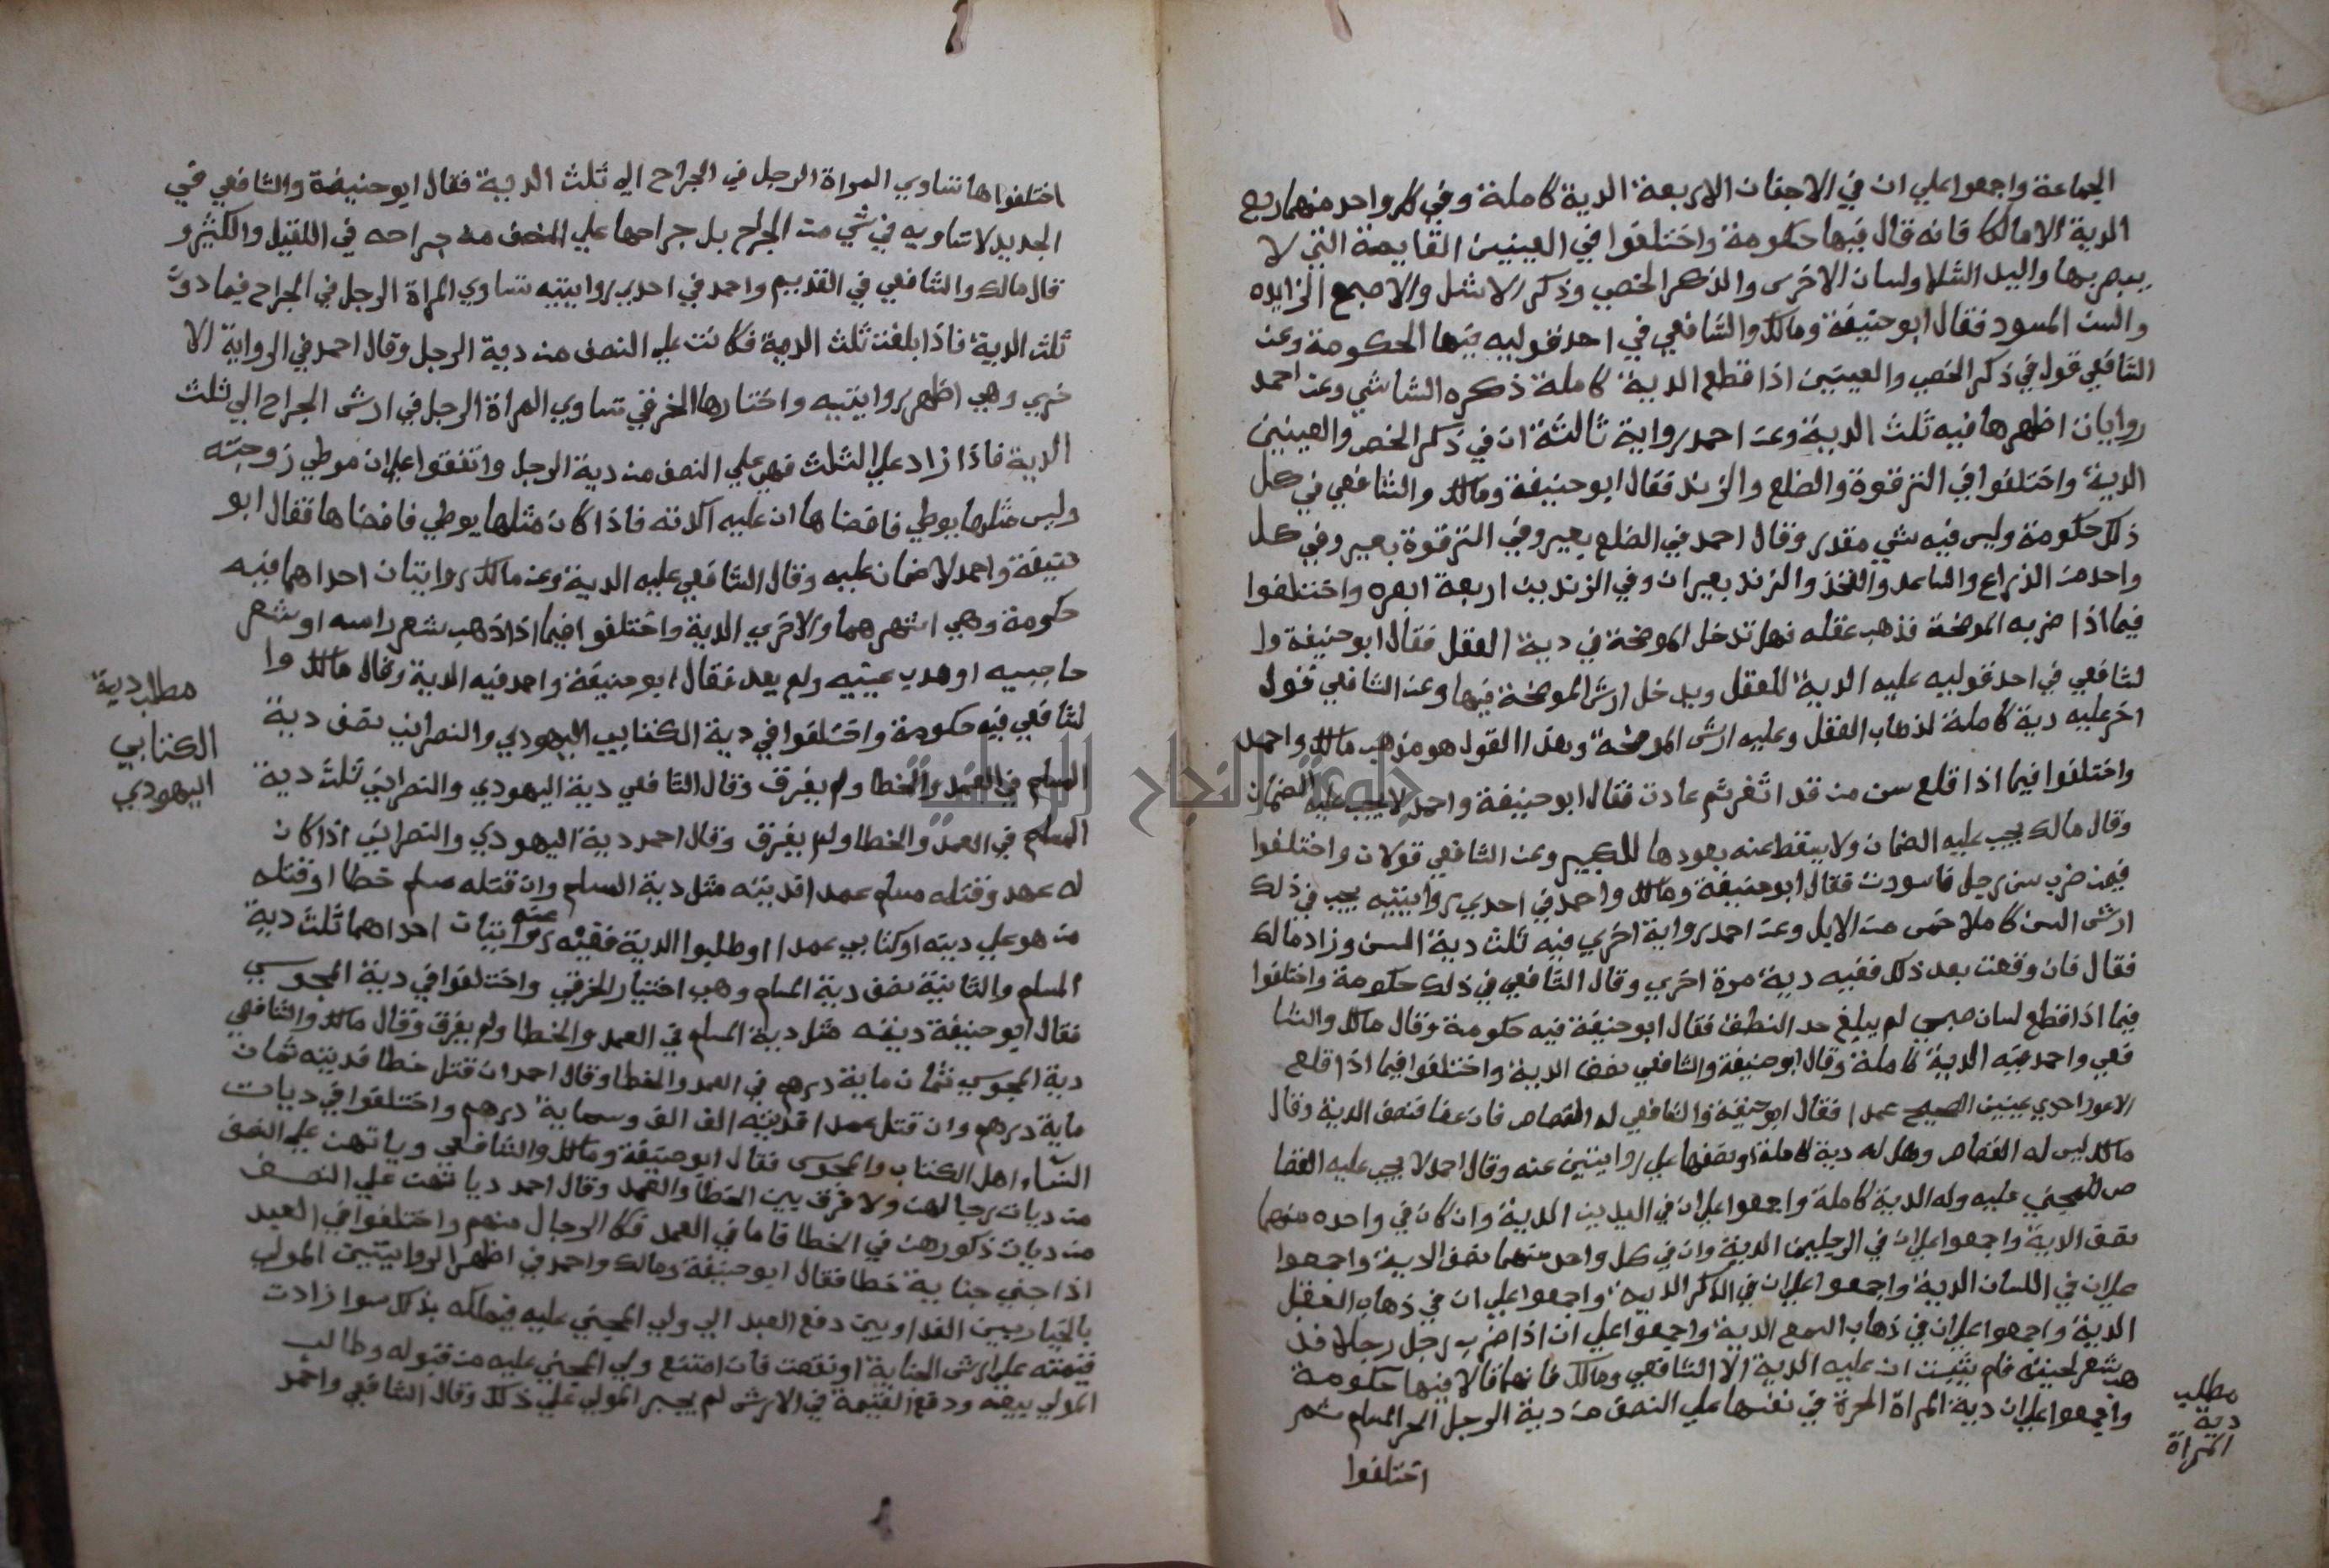 الجماعة واجمعوا علي ان في الاجفان الاربعة الدية كاملة وفي كل واحد منهما ربع
الدية الا مالكا فانه قال فيها حكومة واختلفوا في العينين القايمة التي لا
يبصر بها واليد الشلا ولسان الاخرس والذكر الخصي وذكر الاشل والاصبع الزايده
والسن المسود فقال ابو حنيفة ومالك والشافعي في احد قوليه فيها الحكومة وعن
الشافعي قول في ذكر الخصي والعينين اذا قطع الدية كاملة ذكره الشاشي وعن احمد
روايان اظهرها فيه ثلث الدية وعن احمد رواية ثالثة ان في ذكر الخصي والعينين
الدية واختلفوا في الترقوة والضلع والزند فقال ابو حنيفة ومالك والشافعي في كل
ذلك حكومة وليس فيه شي مقدر وقال احمد في الضلع بعير وفي الترقوة بعير وفي كل
واحد من الذراع والساعد والفخذ والزند بعيران وفي الزندين اربعة ابعره واختلفوا
فيما اذا ضربه الموضحة فذهب عقله فهل تدخل الموضحة في دية العقل فقال ابو حنيفة وا
لشافعي في احد قوليه عليه الدية للعقل ويدخل ارش الموضحة فيها وعن الشافعي قول
اخر عليه دية كاملة لذهاب العقل وعليه ارش الموضحة وهذا القول هو مذهب مالك واحمد
واختلفوا فيما اذا قلع سن من قد اثغر ثم عادت فقال ابو حنيفة واحمد لا يجب عليه الضمان
وقال مالك يجب عليه الضمان ولا يسقط عنه بعودها للكبير وعن الشافعي قولان واختلفوا
فيمن ضرب سن رجل فاسودت فقال ابو حنيفة ومالك واحمد في احدي روايتيه يجب في ذلك
ارش السن كاملا خمس من الابل وعن احمد رواية اخري فيه ثلث دية السن وزاد مالك
فقال فان وقعت بعد ذلك ففيه دية مرة اخري وقال الشافعي في ذلك حكومة واختلفوا
فيما اذا قطع لسان صبي لم يبلغ حد النطق فقال ابو حنيفة فيه حكومة وقال مالك والشا
فعي واحمد فيه الدية كاملة وقال ابو حنيفة والشافعي نصف الدية واختلفوا فيما اذا قلع
الاعور احدي عينين الصحيح عمدا فقال ابو حنيفة والشافعي له القصاص فان عفا فنصف الدية وقال
مالك ليس له القصاص وهل له دية كاملة او نصفها علي روايتين عنه وقال احمد لا يجب عليه القصا
ص للمجني عليه وله الدية كاملة واجمعوا علي ان في اليدين الدية وان كان في واحده منهما
نصف الدية واجمعوا علي ان في الرجلين الدية وان في كل واحد منهما نصف الدية واجمعوا
علي ان في اللسان الدية واجمعوا علي ان في الذكر الدية واجمعوا علي ان في ذهاب العقل
الدية واجمعوا علي ان في ذهاب السمع الدية واجمعوا علي ان اذا ضرب رجل رجلا فذ
هب شعر لحيته فلم يثبت ان عليه الدية الا الشافعي ومالك فانهما قالا فيها حكومة
واجمعوا علي ان دية المراة الحرة في نفسها علي النصف من دية الرجل الحر المسلم ثم
اختلفوا
مطلب
دية
المراة
اختلفوا هل تساوي المراة الرجل في الجراح الي ثلث الدية فقال ابو حنيفة والشافعي في
الجديد لا تساويه في شي من الجراح بل جراحها علي النصف من جراحه في القليل والكثير و
قال مالك والشافعي في القديم واحمد في احدي روايتيه تساوي المراة الرجل في الجراح فيما دون
ثلث الدية فاذا بلغت ثلث الدية فكانت علي النصف من دية الرجل وقال احمد في الرواية الا
خري وهي اظهر روايتيه واختارها الخرقي تساوي المراة الرجل في ارش الجراح الي ثلث
الدية فاذا زاد علي الثلث فهي علي النصف من دية الرجل واتفقوا علي ان من وطي زوجته
وليس مثلها يوطي فافضاها ان عليه الدية فاذا كان مثلها يوطي فافضاها فقال ابو
حنيفة واحمد لا ضمان عليه وقال الشافعي عليه الدية وعن مالك روايتان احداهما فيه
حكومة وهي اشهرهما والاخري الدية واختلفوا فيما اذا اذهب شعر راسه او شعر
حاجبيه او هدب عينيه ولم يعد فقال ابو حنيفة واحمد فيه الدية وقال مالك وا
لشافعي فيه حكومة واختلفوا في دية الكتابي اليهودي والنصراني نصف دية
المسلم في العمد والخطا ولم يفرق وقال الشافعي دية اليهودي والنصراني ثلث دية
المسلم في العمد والخطا ولم يفرق وقال احمد دية اليهودي والنصراني اذا كان
له عهد وقتله مسلم عمدا فديته مثل دية المسلم وان قتله مسلم خطا او قتله
من هو علي دينه او كتابي عمدا او طلبوا الدية ففيه عنه روايتان احداهما ثلث دية
المسلم والثانية نصف دية المسلم وهي اختيار الخرقي واختلفوا في دية المجوسي
فقال ابو حنيفة ديته مثل دية المسلم في العمد والخطا ولم يفرق وقال مالك والشافعي
دية المجوسي ثمان ماية درهم في العمد والخطا وقال احمد ان قتل خطا فديته ثمان
ماية درهم وان قتل عمدا فديته الف الف وسماية درهم واختلفوا في ديات
النساء اهل الكتاب والمجوسي فقال ابو حنيفة ومالك والشافعي دياتهن علي النصف
من ديات رجالهن ولا فرق بين الخطا والعمد وقال احمد دياتهن علي النصف
من ديات ذكورهن في الخطا فاما في العمد فكالرجال منهم واختلفوا في العبد
اذا جني جناية خطا فقال ابو حنيفة ومالك واحمد في اظهر الروايتين المولي
بالخيار بين الفدا وبين دفع العبد الي ولي المجني عليه فيملكه بذلك سوا زادت
قيمته علي ارش الجناية او نقصت فان امتنع ولي المجني عليه من قبوله وطالب
المولي ببيعه ودفع القيمة في الارش لم يجبر المولي علي ذلك وقال الشافعي واحمد
مطلب دية
الكتابي
اليهودي
جامعة النجاح الوطنية